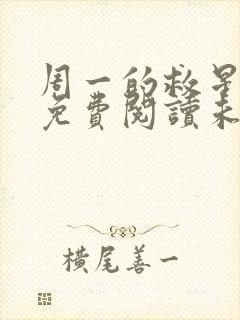 周一的救星
免費閱讀未
橫尾善一